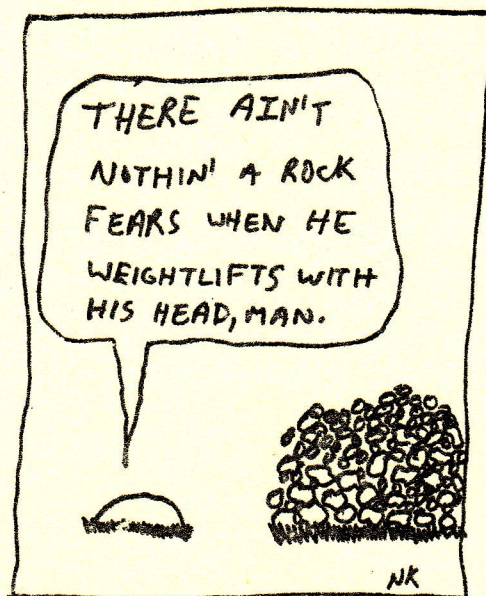 THERE AIN'T
NOTHIN' A ROCK
FEARS WHEN HE
WEIGHTLIFTS WITH
HIS HEAD, MAN.
NK